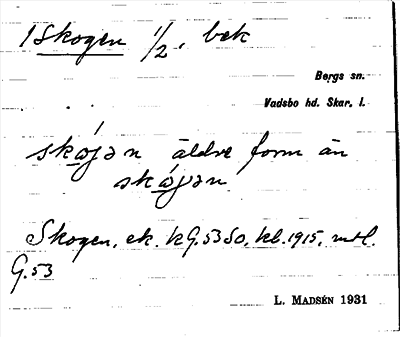 1 Skogen 1/2, bek
Bergs sn.
Vadsbo hd. Skar. l.
skåjən äldre form än
skåɡən
Skogen, ek. kG.53 SO, kl. 1915, mtl.
G.53
L. MADSÉN 1931